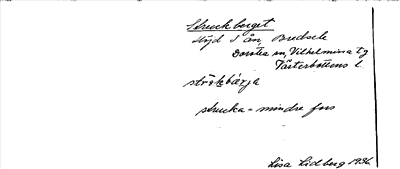 Struckberget
Höjd S ån, Bredsele
Dorotea sn, Vilhelmina tg
Västerbottens l
strucka - mindre fors
Lisa Lidberg 1936